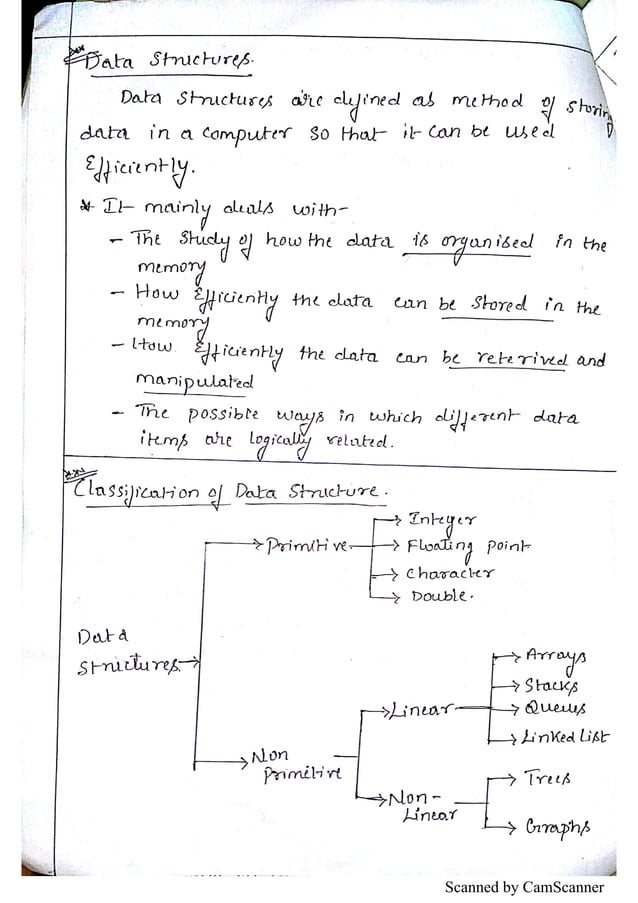 Data Structures.
Data Structures are defined as method of storing
data in a computer so that it can be used
Efficiently.
* It mainly deals with-
- The study of how the data is organised in the
memory
- How Efficiently the data can be stored in the
memory
- How Efficiently the data can be reterived and
manipulated
- The possible ways in which different data
items are logically related.
Classification of Data Structure.
Data
Structures
Primitive
Integer
Floating point
Character
Double.
Non
Primitive
Linear
Arrays
Stacks
Queues
Linked List
Non-
Linear
Trees
Graphs
Scanned by CamScanner